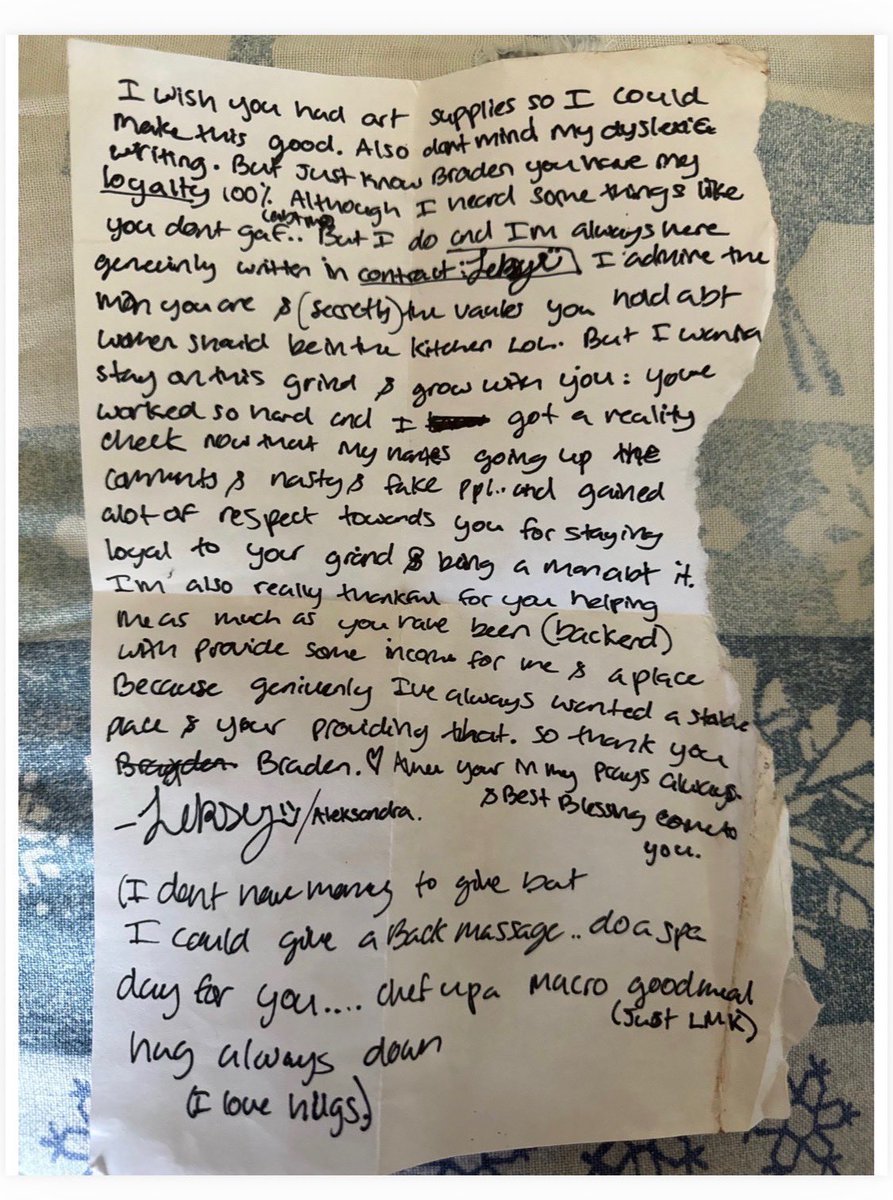 I wish you had art supplies so I could
make this good. Also dont mind my dyslexic
writing. But Just Know Braden you have my
loyalty 100% Although I heard some things like
you dont gaf.. But I do and I'm always here
genuinly written in contract: I admire the
man you are & (secretly) the vaules you hold abt
women should be in the kitchen LOL. But I wanna
stay on this grind & grow with you: youve
worked so hard and I got a reality
check now that my names going up the
comments & nasty & fake ppl.. and gained
alot of respect towards you for staying
loyal to your grind & being a man abt it.
I'm also really thankful for you helping
me as much as you have been (backend)
with provide some income for me & a place
Because geniuenly I've always wanted a stable
place & your providing that. so thank you
Brayden Braden.♡ your in my prays always.
& Best Blessing come to
you.
/Aleksandra.
(I dont have money to give but
I could give a Back massage.. do a spa
day for you.... chef up a macro good meal
(Just LMK)
hug always down
(I love hugs)